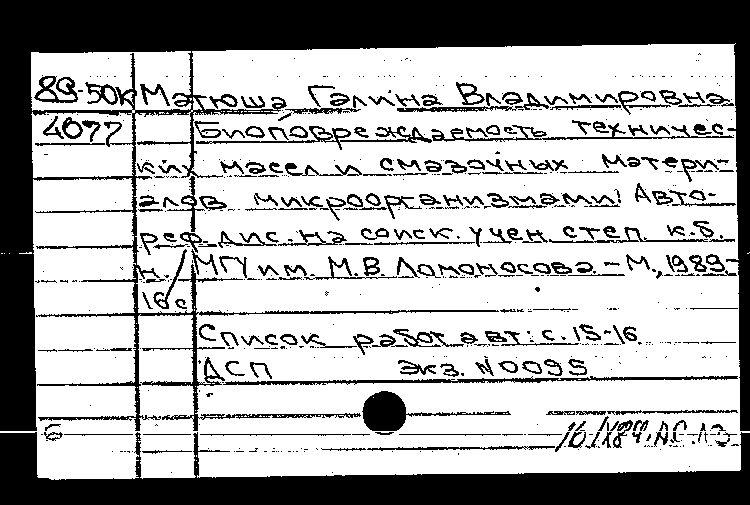 89-50к Матюша Галина Владимировна
4077 Биоповреждаемость техничес-
ких масел и смазочных матери-
алов микроорганизмами: Авто-
реф. дис. на соиск. учен. степ. к.б.
н. / МГУ им. М.В. Ломоносова. - М., 1989.-
16 с.
Список работ авт.: с. 15-16
ДСП Экз. N0095
б